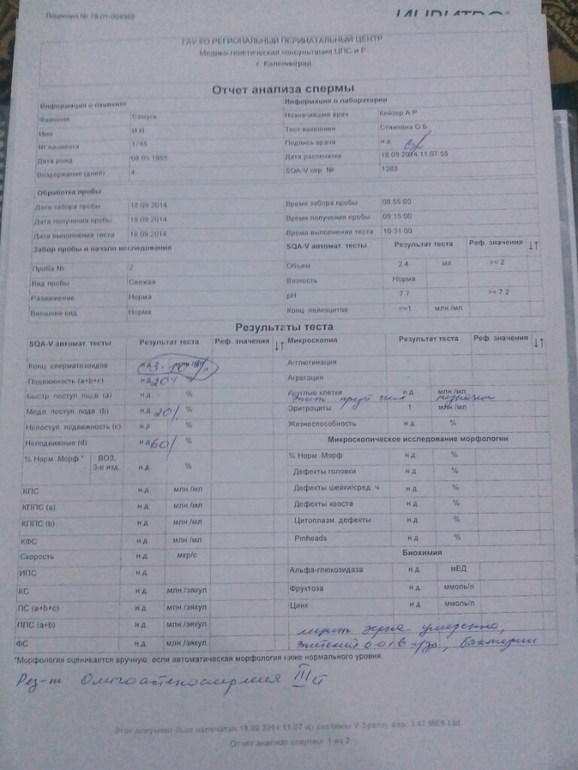 ГАУ КО РЕГИОНАЛЬНЫЙ ПЕРИНАТАЛЬНЫЙ ЦЕНТР
Медико-генетическая консультация ЦПС и Р
г. Калининград
Отчет анализа спермы
Информация о пациенте Информация о лаборатории
Фамилия Назначивший врач Кейзер А Р
Имя Тест выполнен
№ пациента 1765 Подпись врача н.д.
Дата рожд Дата распечатки 18.09.2014 11:07:55
Воздержание (дней) 4 SQA-V сер. № 1383
Обработка пробы
Дата забора пробы 18.09.2014 Время забора пробы 08:55:00
Дата получения пробы 18.09.2014 Время получения пробы 09:15:00
Дата выполнения теста 18.09.2014 Время выполнения теста 10:31:00
Забор пробы и начало исследования SQA-V автомат. тесты Результат теста Реф. значения ↓↑
Проба № 2 Объем 2.4 мл >= 2
Вид пробы Свежая Вязкость Норма
Разжижение Норма pH 7.7 >= 7.2
Внешний вид Норма Конц. лейкоцитов <=1 млн./мл
Результаты теста
SQA-V автомат. тесты Результат теста Реф. значения ↓↑ Микроскопия Результат теста Реф. значения ↓↑
Конц. сперматозоидов н.д. млн./мл Агглютинация
Подвижность (a+b+c) н.д. 20% Агрегация
Быстр. поступ. подв. (a) н.д. % Круглые клетки н.д. млн./мл
Медл. поступ. подв. (b) н.д. 20% Эритроциты 1 млн./мл
Непоступ. подвижность (c) н.д. % Жизнеспособность н.д. %
Неподвижные (d) н.д. 60% Микроскопическое исследование морфологии
% Норм. Морф.* ВОЗ, 3-е изд. н.д. % % Норм. Морф. н.д. %
Дефекты головки н.д. %
КПС н.д. млн./мл Дефекты шейки/сред. ч. н.д. %
КППС (a) н.д. млн./мл Дефекты хвоста н.д. %
КППС (b) н.д. млн./мл Цитоплазм. дефекты н.д. %
КФС н.д. млн./мл Pinheads н.д. %
Скорость н.д. мкр/с Биохимия
ИПС н.д. Альфа-глюкозидаза н.д. мЕД
КС н.д. млн./эякул Фруктоза н.д. ммоль/л
ПС (a+b+c) н.д. млн./эякул Цинк н.д. ммоль/л
ППС (a+b) н.д. млн./эякул
ФС н.д. млн./эякул
*Морфология оценивается вручную, если автоматическая морфология ниже нормального уровня.
Рез-т Олигоастеноспермия III ст
Этот документ был напечатан 18.09.2014 11:07 из системы V-Sperm, вер. 3.47 MES Ltd.
Отчет анализа спермы: 1 из 2